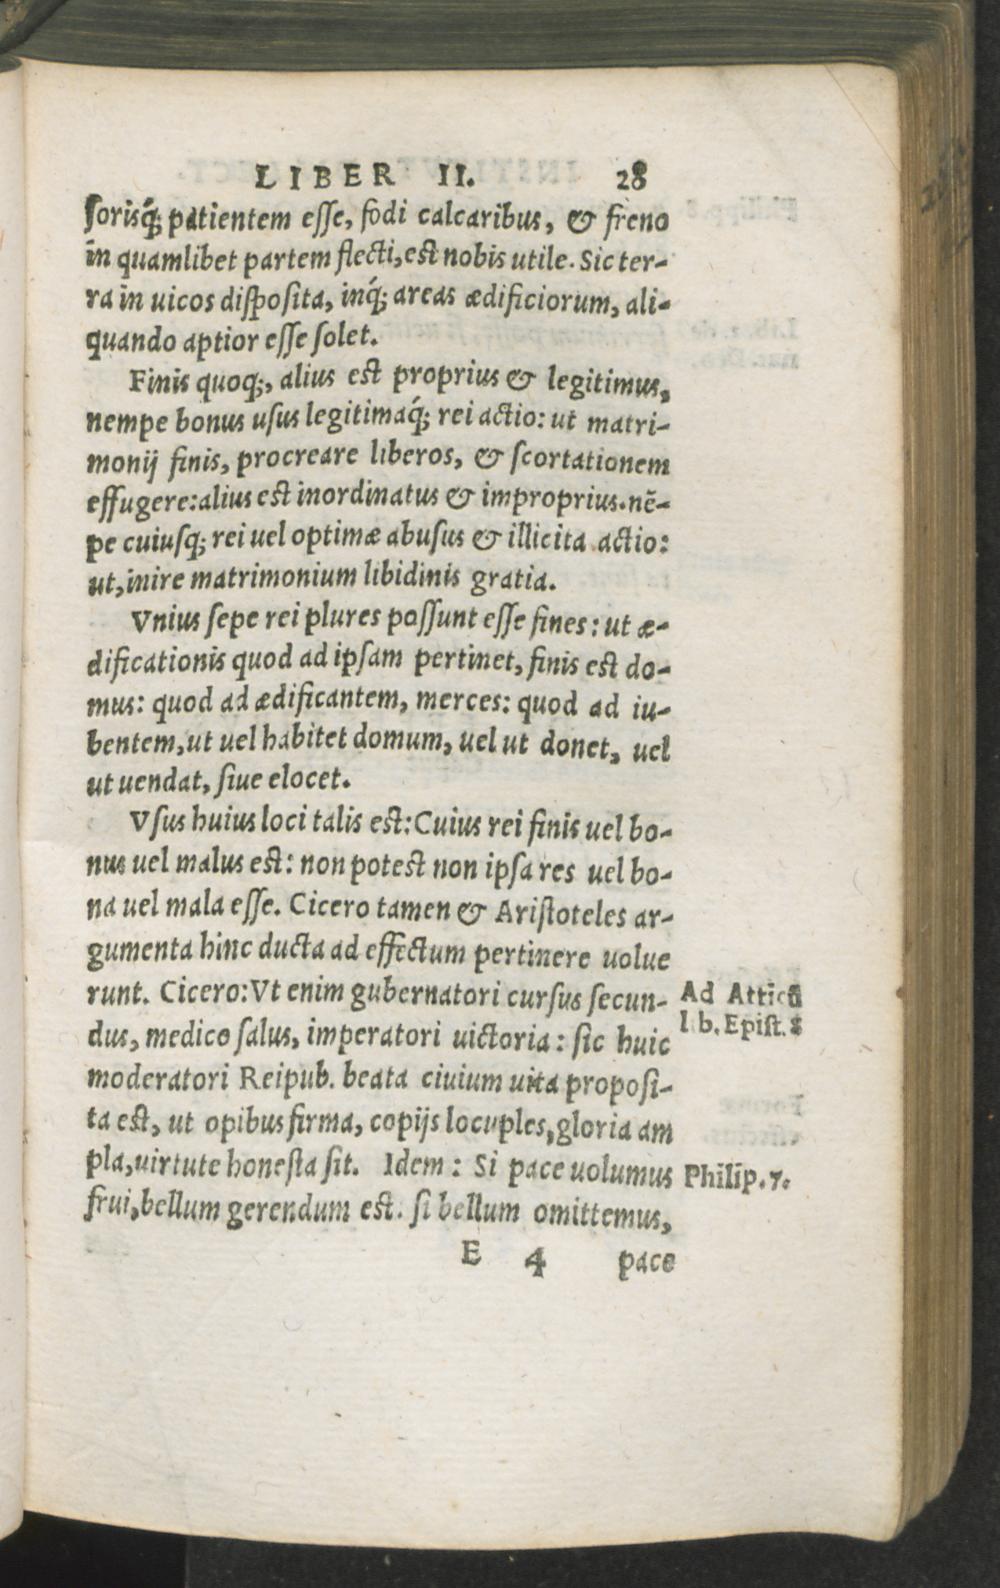 LIBER II. 28
ſorisq́; patientem eſſe, fodi calcaribus, & freno
in quamlibet partem flecti, est nobis utile. Sic ter-
ra in uicos diſpoſita, inq́; areas ædificiorum, ali-
quando aptior eſſe ſolet.
Finis quoq;, alius est proprius & legitimus,
nempe bonus uſus legitimaq́; rei actio: ut matri-
monij finis, procreare liberos, & ſcortationem
effugere: alius est inordinatus & improprius. nē-
pe cuiuſq; rei uel optimæ abuſus & illicita actio:
ut, inire matrimonium libidinis gratia.
Vnius ſepe rei plures poſſunt eſſe fines: ut æ-
dificationis quod ad ipſam pertinet, finis est do-
mus: quod ad ædificantem, merces: quod ad iu-
bentem, ut uel habitet domum, uel ut donet, uel
ut uendat, ſiue elocet.
Vſus huius loci talis est: Cuius rei finis uel bo-
nus uel malus est: non potest non ipſa res uel bo-
na uel mala eſſe. Cicero tamen & Ariſtoteles ar-
gumenta hinc ducta ad effectum pertinere uolue
runt. Cicero: Vt enim gubernatori curſus ſecun- Ad Atticū
dus, medico ſalus, imperatori uictoria: ſic huic l b. Epiſt. 8
moderatori Reipub. beata ciuium uita propoſi-
ta est, ut opibus firma, copijs locuples, gloria am
pla, uirtute honeſta ſit. Idem: Si pace uolumus Philip. 7.
frui, bellum gerendum est. ſi bellum omittemus,
E 4 pace